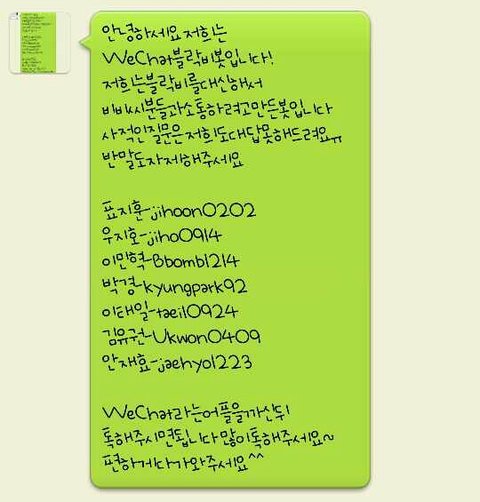 안녕하세요 저희는
WeChat블락비봇입니다!
저희는블락비를대신해서
비비씨분들과소통하려고만든봇입니다
사적인질문은저희도대답못해드려요ㅠ
반말도자제해주세요
표지훈-jihoon0202
우지호-jiho0914
이민혁-Bbomb1214
박경-kyungpark92
이태일-taeil0924
김유권-Ukwon0409
안재효-jaehyo1223
WeChat라는어플을까신뒤
톡해주시면됩니다많이톡해주세요~
편하게다가와주세요^^